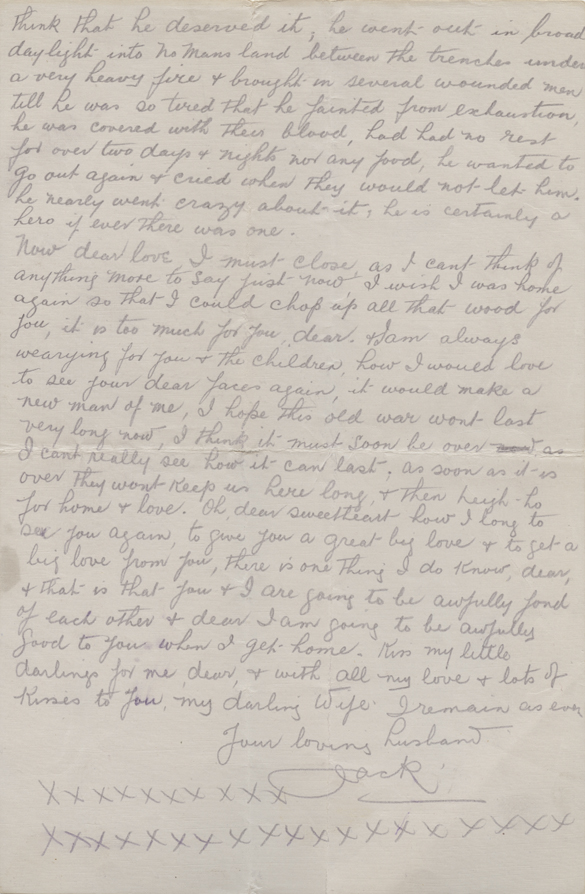 think that he deserved it, he went out in broad
daylight into No Mans land between the trenches under
a very heavy fire & brought in several wounded men
till he was so tired that he fainted from exhaustion,
he was covered with their blood, had had no rest
for over two days & nights nor any food, he wanted to
go out again & cried when they would not let him.
he nearly went crazy about it, he is certainly a
hero if ever there was one.
Now dear love I must close as I cant think of
anything more to say just now I wish I was home
again so that I could chop up all that wood for
you, it is too much for you dear. I am always
wearying for you & the children, how I would love
to see your dear faces again, it would make a
new man of me, I hope this old war wont last
very long now, I think it must soon be over as
I cant really see how it can last, as soon as it is
over they wont keep us here long, & then heigh-ho
for home & love. Oh, dear sweetheart how I long to
see you again, to give you a great big love & to get a
big love from you, there is one thing I do know, dear,
& that is that you & I are going to be awfully fond
of each other & dear I am going to be awfully
good to you when I get home. Kiss my little
darlings for me dear, & with all my love & lots of
Kisses to you, my darling Wife I remain as ever
Your loving husband
Jack
X X X X X X X X X X
X X X X X X X X X X X X X X X X X X